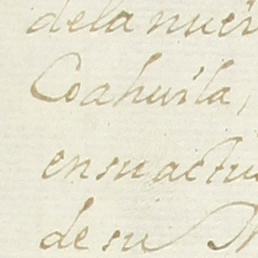 dela nuev
Coahuila,
en su actu
de su